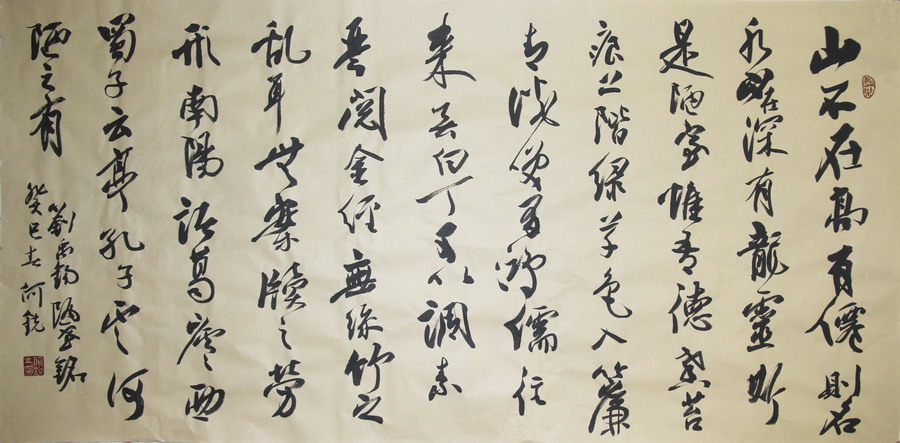 山不在高有僊則名
水不在深有龍靈斯
是陋室惟吾德馨苔
痕上階綠草色入簾
青談笑有鴻儒往
来無白丁可以調素
琴閲金經無絲竹之
乱耳無案牘之勞
形南陽諸葛廬西
蜀子云亭孔子云何
陋之有
劉禹錫陋室銘
癸巳春何銳